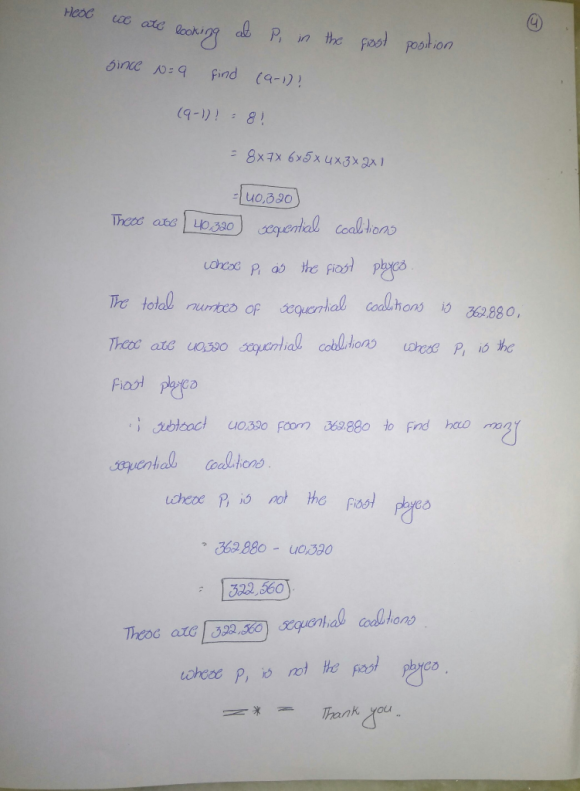 4
Here we are looking at P1 in the first position
Since N=9 find (9-1)!
(9-1)! = 8!
= 8×7×6×5×4×3×2×1
= 40,320
There are 40,320 sequential coalitions
where P1 is the first player.
The total number of sequential coalitions is 362,880.
There are 40,320 sequential coalitions where P1 is the
First player
∴ subtract 40,320 from 362,880 to find how many
sequential coalitions.
where P1 is not the first player
= 362,880 - 40,320
= 322,560
There are 322,560 sequential coalitions.
where P1 is not the first player.
=*= Thank you.